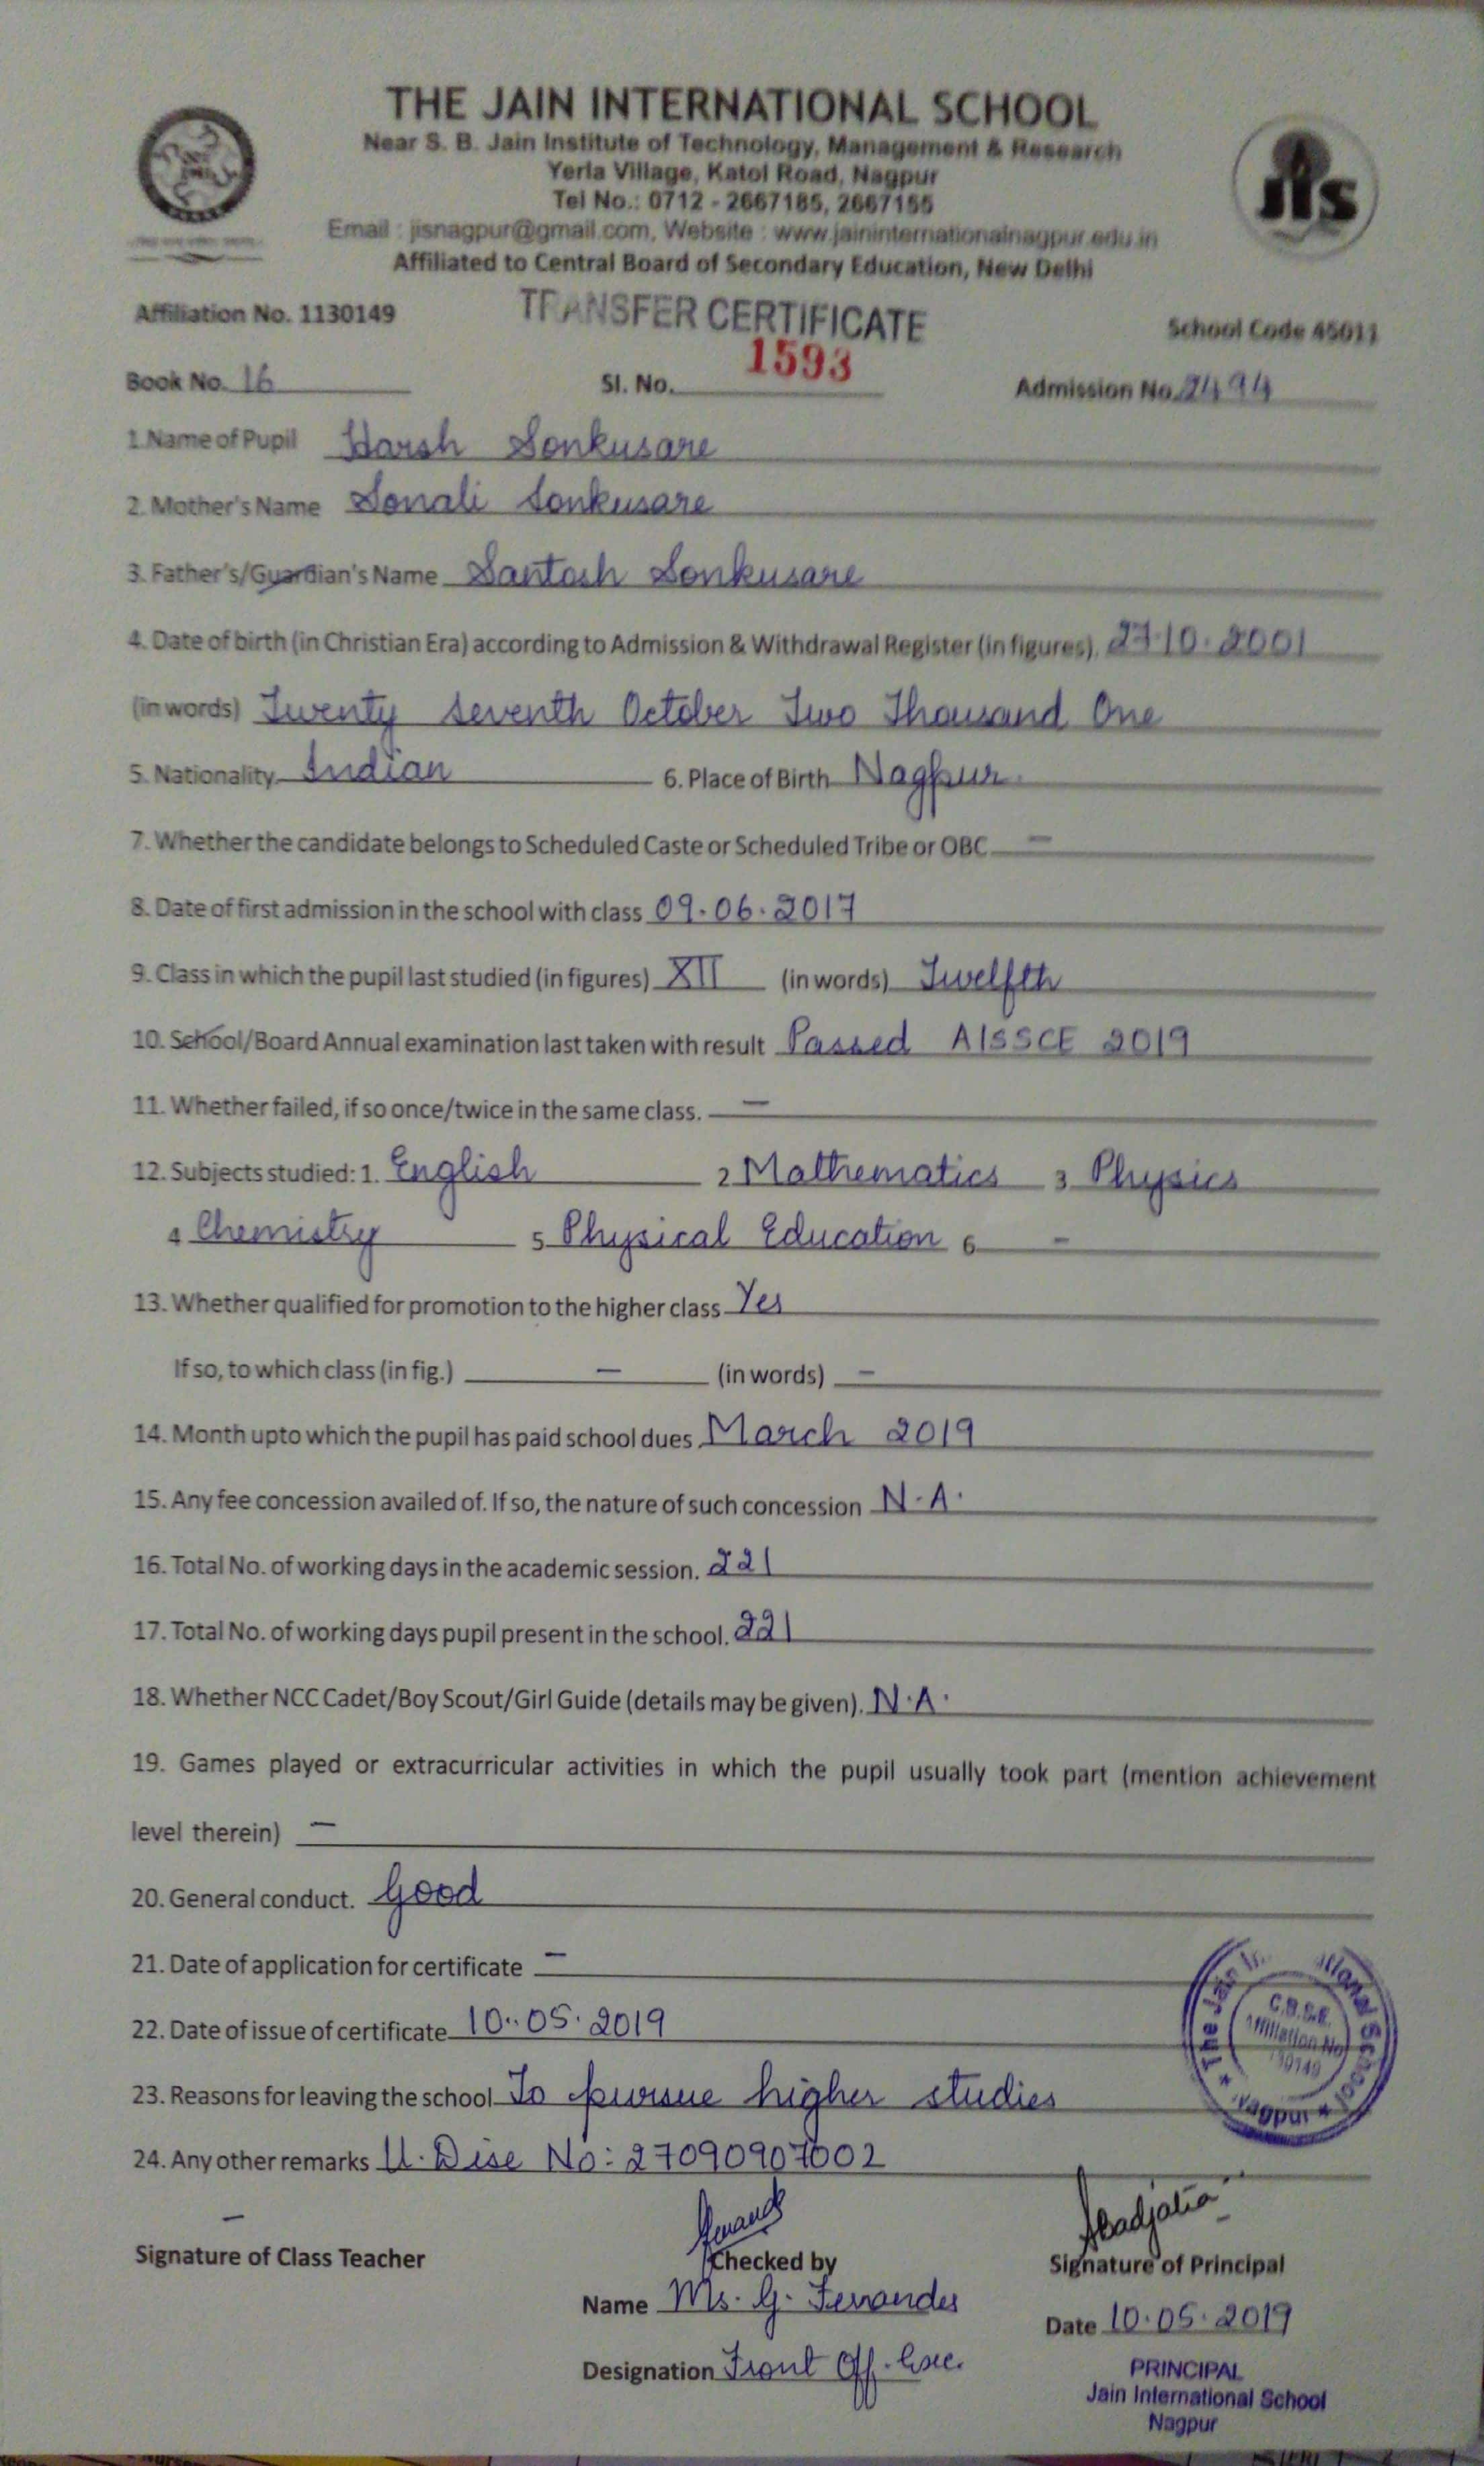 THE JAIN INTERNATIONAL SCHOOL
Near S. B. Jain Institute of Technology, Management & Research
Yerla Village, Katol Road, Nagpur
Tel No.: 0712 - 2667185, 2667155
Email : jisnagpur@gmail.com, Website : www.jaininternationalnagpur.edu.in
Affiliated to Central Board of Secondary Education, New Delhi
jIs
Affiliation No. 1130149 TRANSFER CERTIFICATE School Code 45011
Book No. 16 Sl. No. 1593 Admission No. 2494
1.Name of Pupil Harsh Sonkusare
2. Mother's Name Sonali Sonkusare
3. Father's/Guardian's Name Santosh Sonkusare
4. Date of birth (in Christian Era) according to Admission & Withdrawal Register (in figures). 27.10.2001
(in words) Twenty Seventh October Two Thousand One
5. Nationality Indian 6. Place of Birth Nagpur.
7. Whether the candidate belongs to Scheduled Caste or Scheduled Tribe or OBC –
8. Date of first admission in the school with class 09.06.2017
9. Class in which the pupil last studied (in figures) XII (in words) Twelfth
10. School/Board Annual examination last taken with result Passed AISSCE 2019
11. Whether failed, if so once/twice in the same class. –
12. Subjects studied: 1. English 2 Mathematics 3 Physics
4 Chemistry 5 Physical Education 6 –
13. Whether qualified for promotion to the higher class Yes
If so, to which class (in fig.) – (in words) –
14. Month upto which the pupil has paid school dues March 2019
15. Any fee concession availed of. If so, the nature of such concession N.A.
16. Total No. of working days in the academic session. 221
17. Total No. of working days pupil present in the school. 221
18. Whether NCC Cadet/Boy Scout/Girl Guide (details may be given). N.A.
19. Games played or extracurricular activities in which the pupil usually took part (mention achievement
level therein) –
20. General conduct. Good
21. Date of application for certificate –
22. Date of issue of certificate 10.05.2019
23. Reasons for leaving the school To pursue higher studies
24. Any other remarks U. Dise No: 27090907002
The Jain School
C.B.S.E.
Affiliation No
Nagpur
–
Signature of Class Teacher Checked by Signature of Principal
Name Ms. G. Fernandes
Date 10.05.2019
Designation Front Off. Exec.
PRINCIPAL
Jain International School
Nagpur